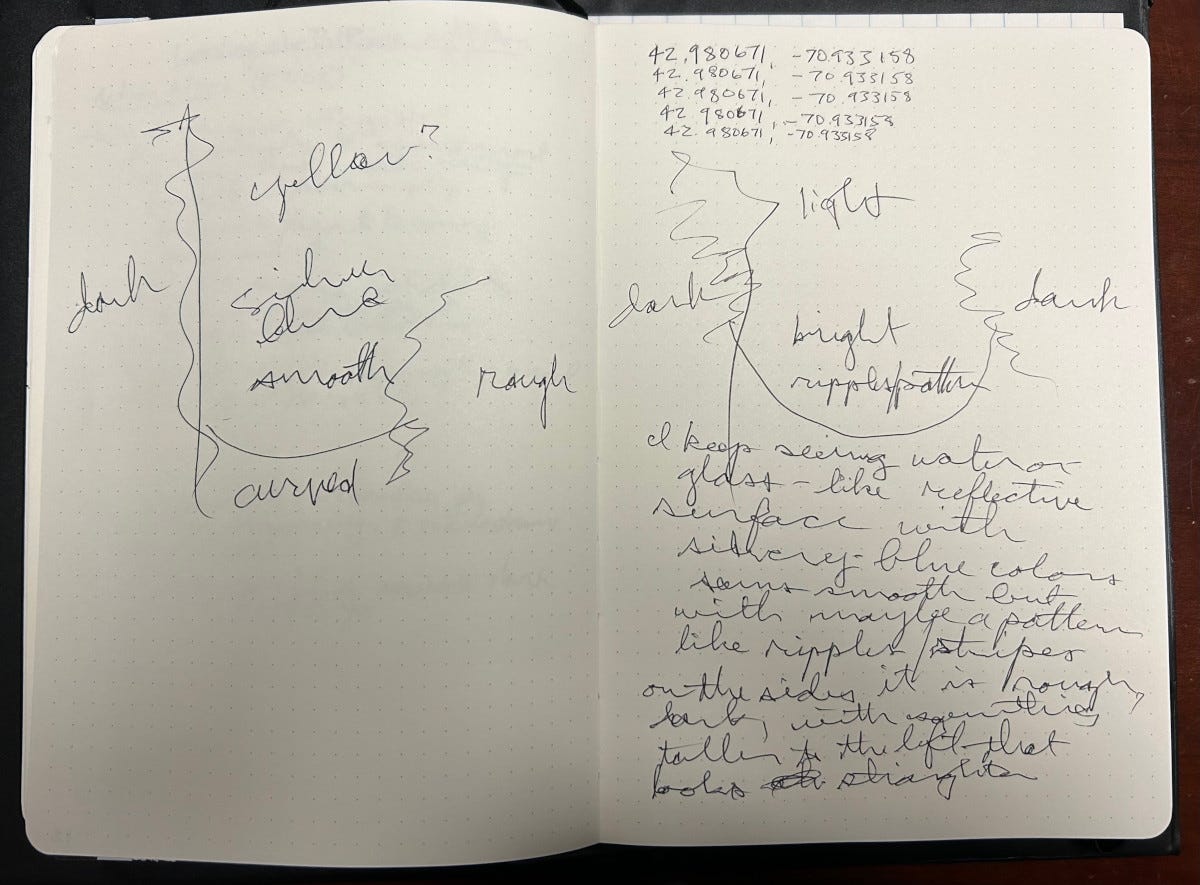 yellow?
dark
silver
blue
smooth
rough
curved
42.980671, -70.933158
42.980671, -70.933158
42.980671, -70.933158
42.980671, -70.933158
42.980671, -70.933158
light
dark
dark
bright
ripples/pattern
I keep seeing water or
glass-like reflective
surface with
silvery-blue colors
seems smooth but
with maybe a pattern
like ripples/stripes
on the sides it is rough,
dark, with something
taller to the left that
looks straighter